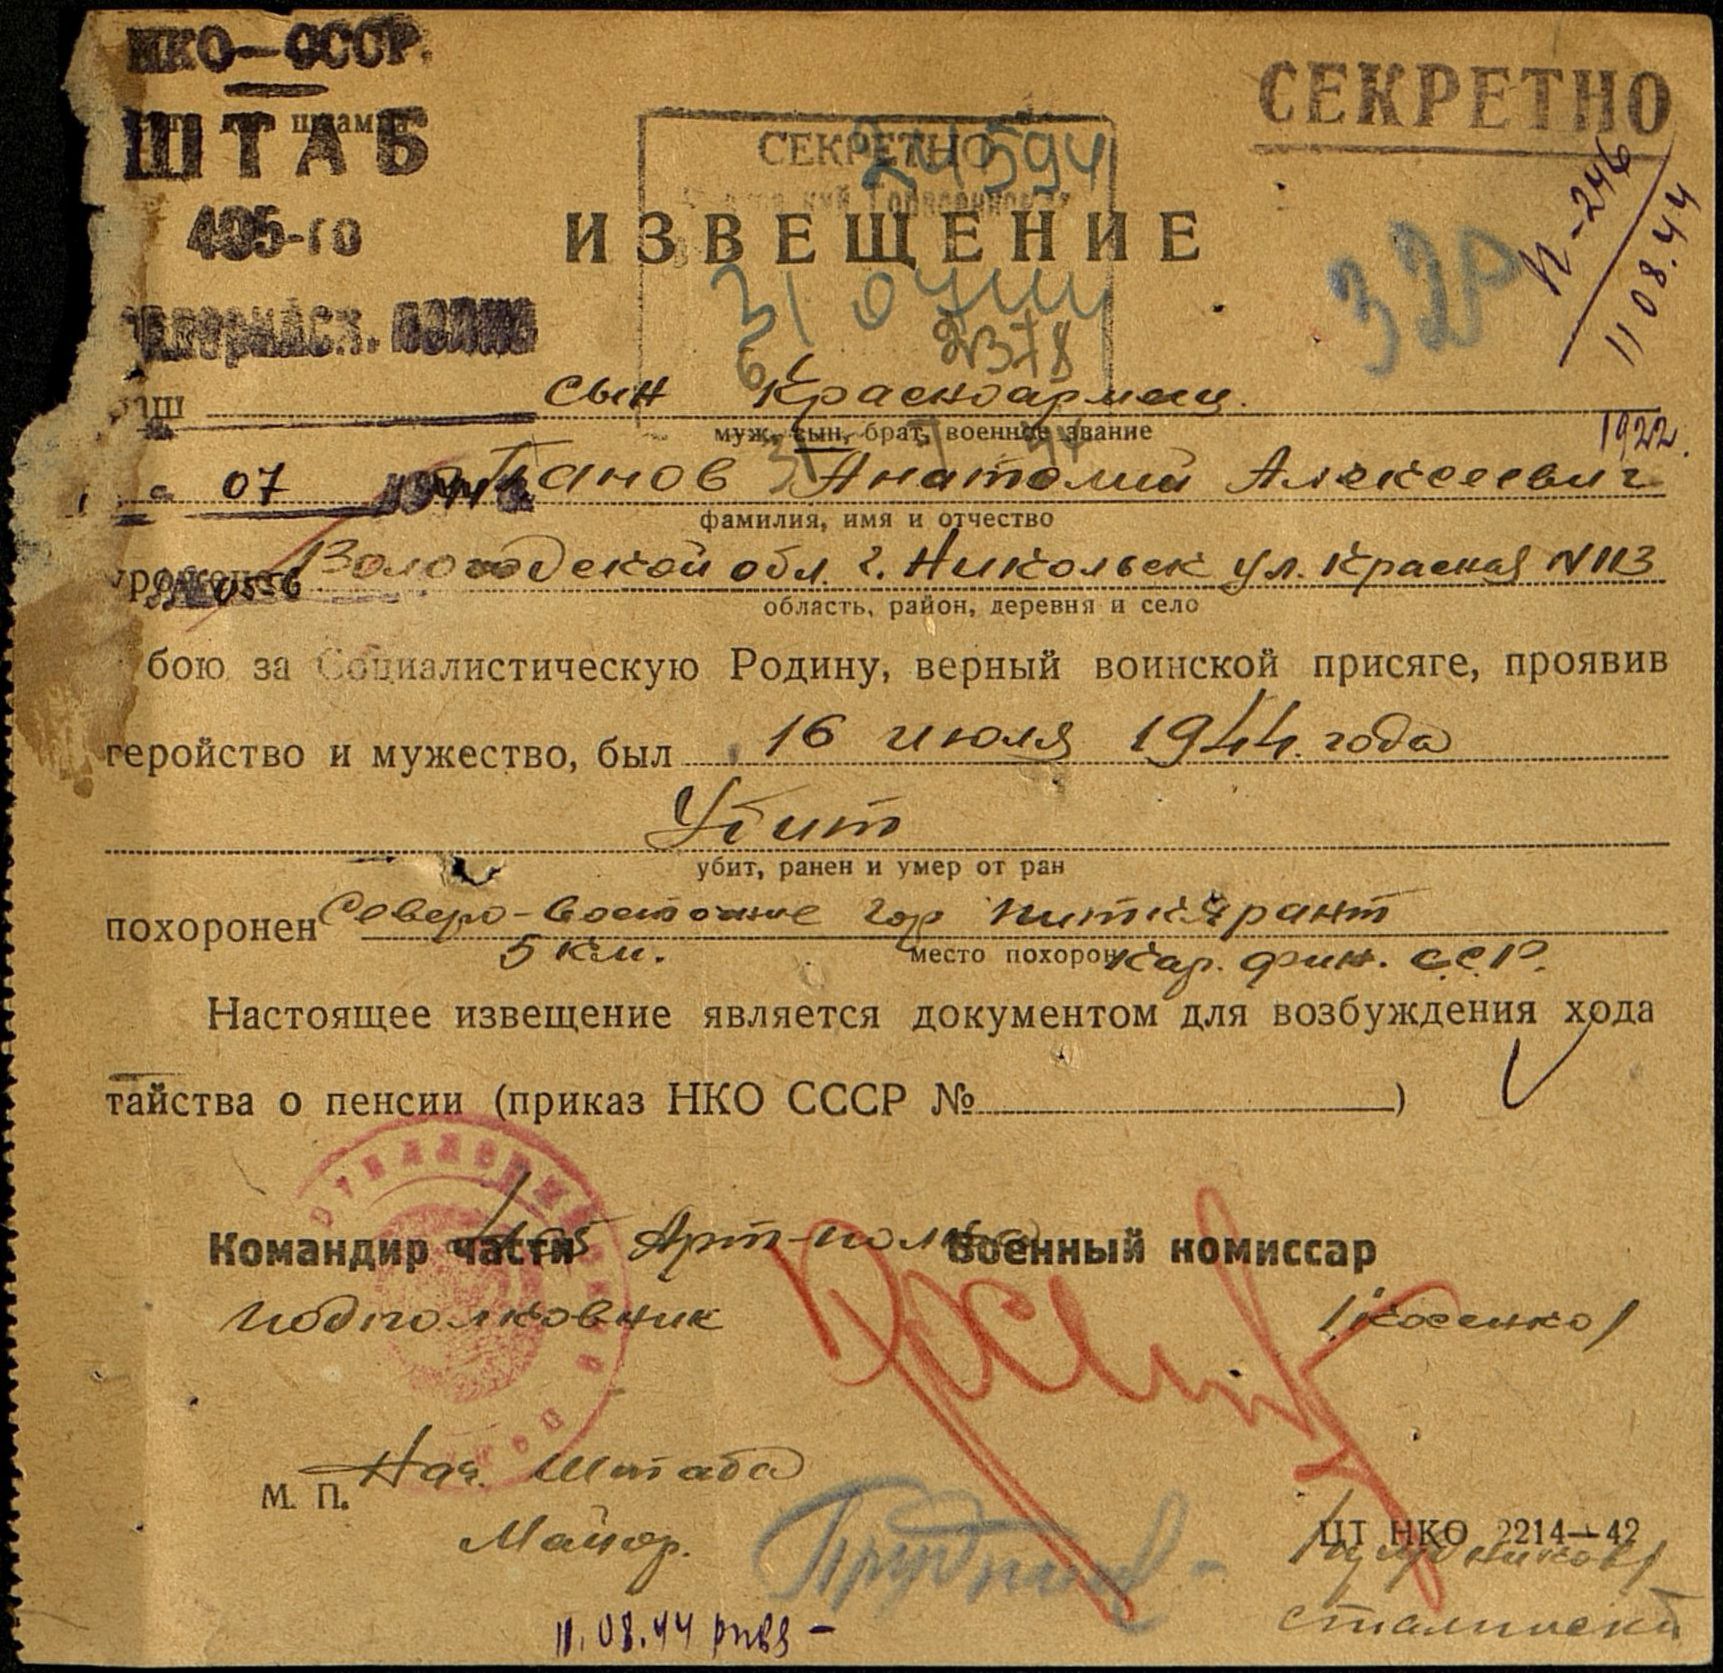 НКО—СССР.
СЕКРЕТНО
ШТАБ
штампа
СЕКРЕТНО
24594
N-246
11 08.44
405-го
ИЗВЕЩЕНИЕ
32Р
31
2378
6
Ваш сын Красноармеец.
муж, сын, брат, военное звание
1922.
07 Панов Анатолий Алексеевич
фамилия, имя и отчество
Вологодской обл. г. Никольск ул. Красная N 113
0556
область, район, деревня и село
бою за Социалистическую Родину, верный воинской присяге, проявив
геройство и мужество, был 16 июля 1944. года
Убит
убит, ранен и умер от ран
похоронен Северо-восточнее гор Питкярант
5 км. место похорон Кар. фин. С.С.Р.
Настоящее извещение является документом для возбуждения хода
тайства о пенсии (приказ НКО СССР № )
Командир части 405 Арт-полка Военный комиссар
Подполковник /Косенко/
М. П. Нач. Штаба
Майор.
ЦТ НКО 2214—42
/Прудников/
11.08.44